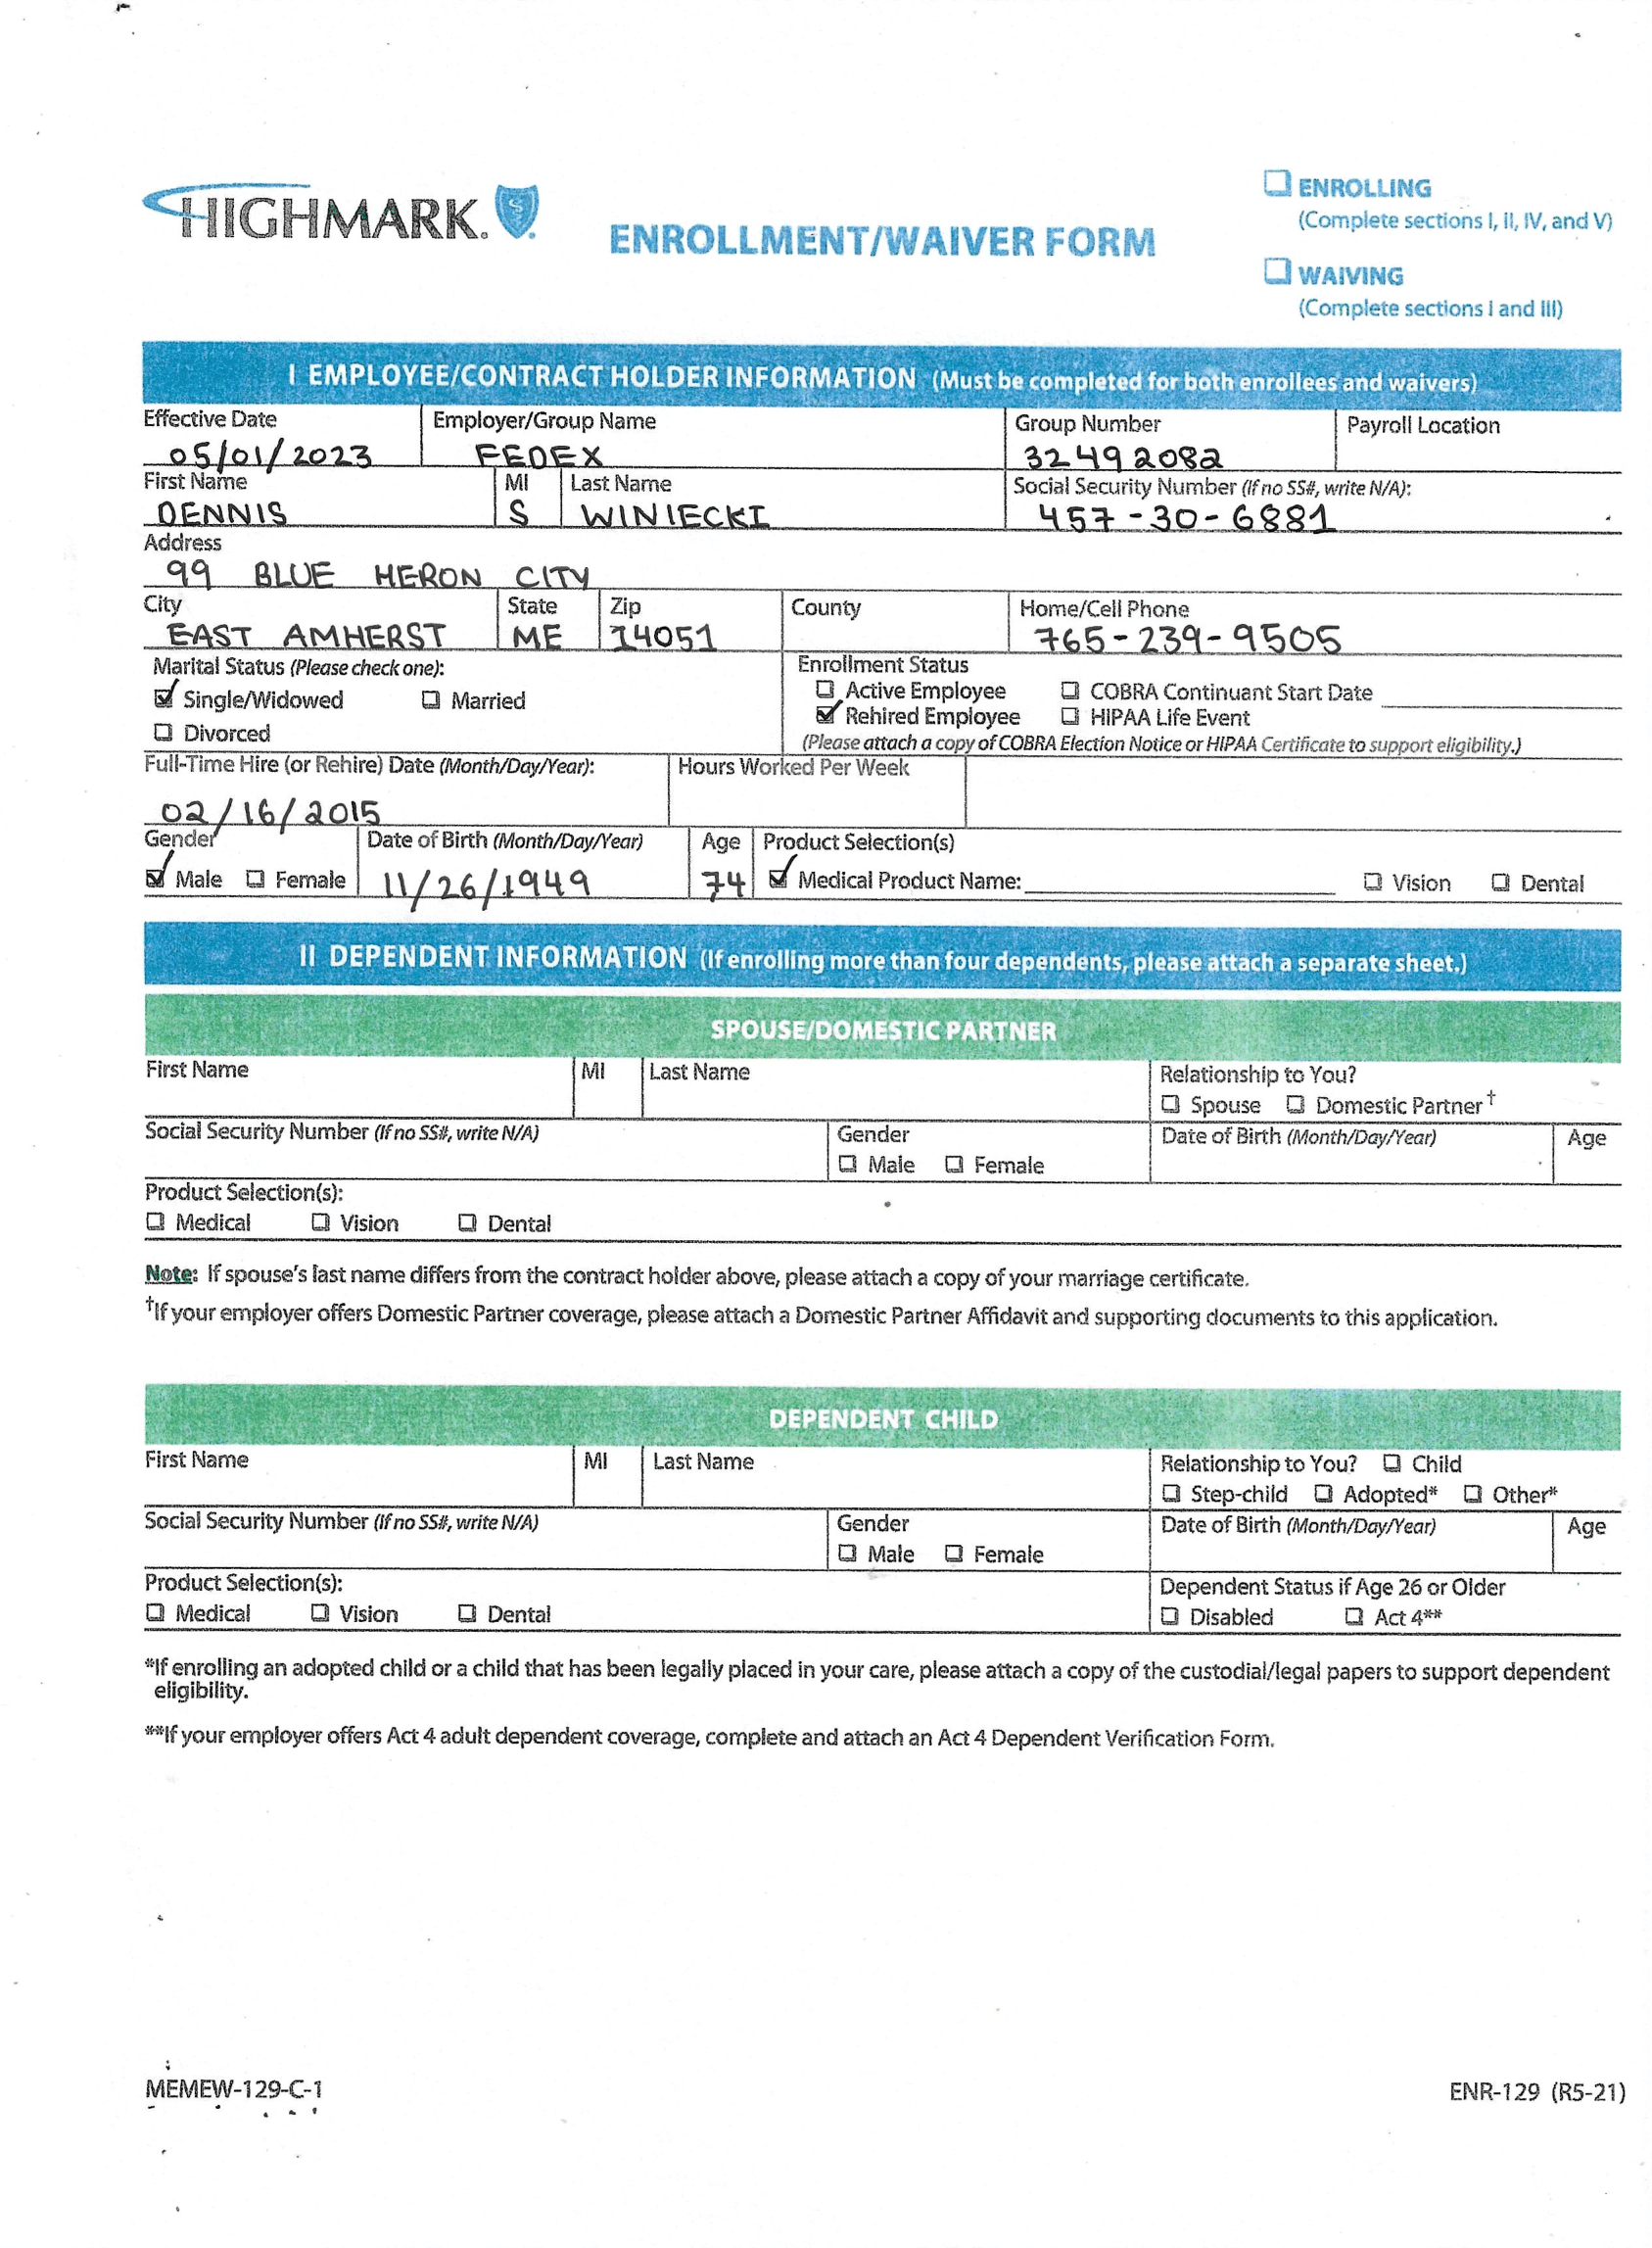 HIGHMARK.
ENROLLMENT/WAIVER FORM
ENROLLING
(Complete sections I, II, IV, and V)
WAIVING
(Complete sections I and III)
I EMPLOYEE/CONTRACT HOLDER INFORMATION (Must be completed for both enrollees and waivers)
Effective Date Employer/Group Name Group Number Payroll Location
05/01/2023 FEDEX 32492082
First Name MI Last Name Social Security Number (If no SS#, write N/A):
DENNIS S WINIECKI 457-30-6881
Address
99 BLUE HERON CITY
City State Zip County Home/Cell Phone
EAST AMHERST ME 14051 765-239-9505
Marital Status (Please check one): Enrollment Status
Single/Widowed Married Active Employee COBRA Continuant Start Date
Divorced Rehired Employee HIPAA Life Event
(Please attach a copy of COBRA Election Notice or HIPAA Certificate to support eligibility.)
Full-Time Hire (or Rehire) Date (Month/Day/Year): Hours Worked Per Week
02/16/2015
Gender Date of Birth (Month/Day/Year) Age Product Selection(s)
Male Female 11/26/1949 74 Medical Product Name: Vision Dental
II DEPENDENT INFORMATION (If enrolling more than four dependents, please attach a separate sheet.)
SPOUSE/DOMESTIC PARTNER
First Name MI Last Name Relationship to You?
Spouse Domestic Partner†
Social Security Number (If no SS#, write N/A) Gender Date of Birth (Month/Day/Year) Age
Male Female
Product Selection(s):
Medical Vision Dental
Note: If spouse's last name differs from the contract holder above, please attach a copy of your marriage certificate.
†If your employer offers Domestic Partner coverage, please attach a Domestic Partner Affidavit and supporting documents to this application.
DEPENDENT CHILD
First Name MI Last Name Relationship to You? Child
Step-child Adopted* Other*
Social Security Number (If no SS#, write N/A) Gender Date of Birth (Month/Day/Year) Age
Male Female
Product Selection(s): Dependent Status if Age 26 or Older
Medical Vision Dental Disabled Act 4**
*If enrolling an adopted child or a child that has been legally placed in your care, please attach a copy of the custodial/legal papers to support dependent
eligibility.
**If your employer offers Act 4 adult dependent coverage, complete and attach an Act 4 Dependent Verification Form.
MEMEW-129-C-1 ENR-129 (R5-21)